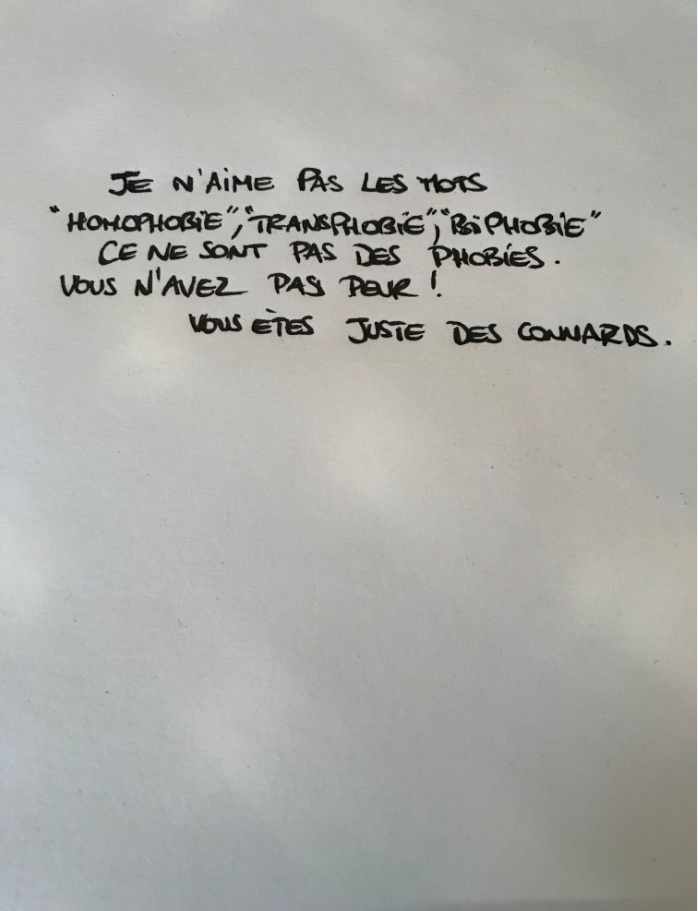 JE N'AIME PAS LES MOTS
"HOMOPHOBIE", "TRANSPHOBIE", "BIPHOBIE"
CE NE SONT PAS DES PHOBIES.
VOUS N'AVEZ PAS PEUR !
VOUS ÊTES JUSTE DES CONNARDS.